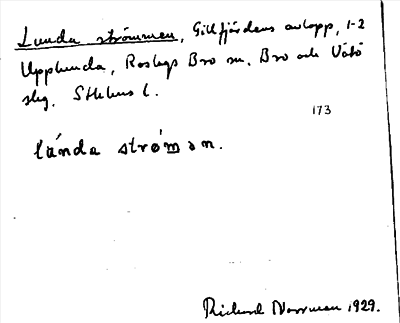 Lunda strömmen, Gillfjärdens avlopp, 1-2
Upplunda, Roslags Bro sn, Bro och Vätö
slg, Sthlms l.
173
lúnda strø̀mən.
Rickard Norrman 1929.